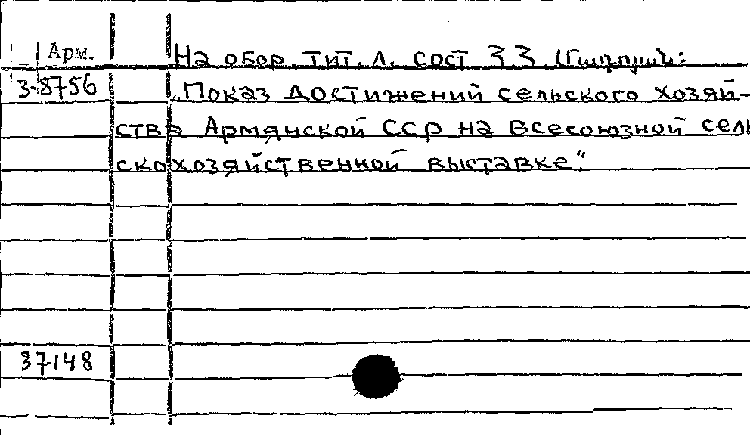 Арм.
На обор. тит. л. сост
3-8756
„Показ достижений сельского хозяй-
ства Армянской ССР на Всесоюзной сель
скохозяйственной выставке"
37148